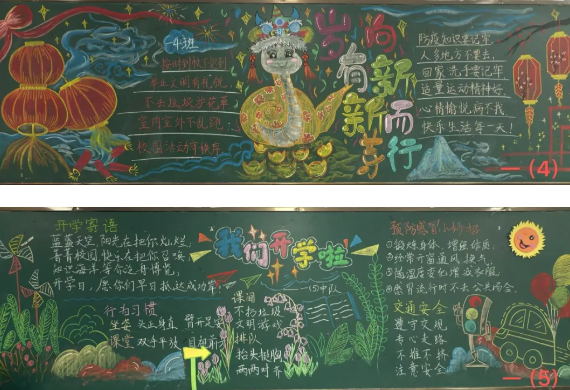 4班
按时到校不迟到
不丢垃圾
室内室外不乱跑
校园活动守秩序
岁向
有新
新而
芽行
防疫知识要记牢
人多地方不要去
回家洗手要记牢
适量运动精神好
心情愉悦病不找
快乐生活每一天！
一(4)
开学寄语
蓝蓝天空 阳光在把你灿烂
青青校园 快乐在把你召唤
知识海洋等你泛舟博览
开学日，愿你们早日抵达成功岸
行为习惯
坐姿 头正身直 臂开足安
课堂 双手平放 目视前
我们开学啦
(5)中队
课间
不扔垃圾
文明游戏
排队
抬头挺胸
两两对齐
预防感冒小妙招
①锻炼身体，增强体质
②经常开窗通风换气
③随温度变化增减衣服
④感冒流行时不去公共场合
交通安全
遵守交规
专心走路
不推不挤
注意安全
(5)